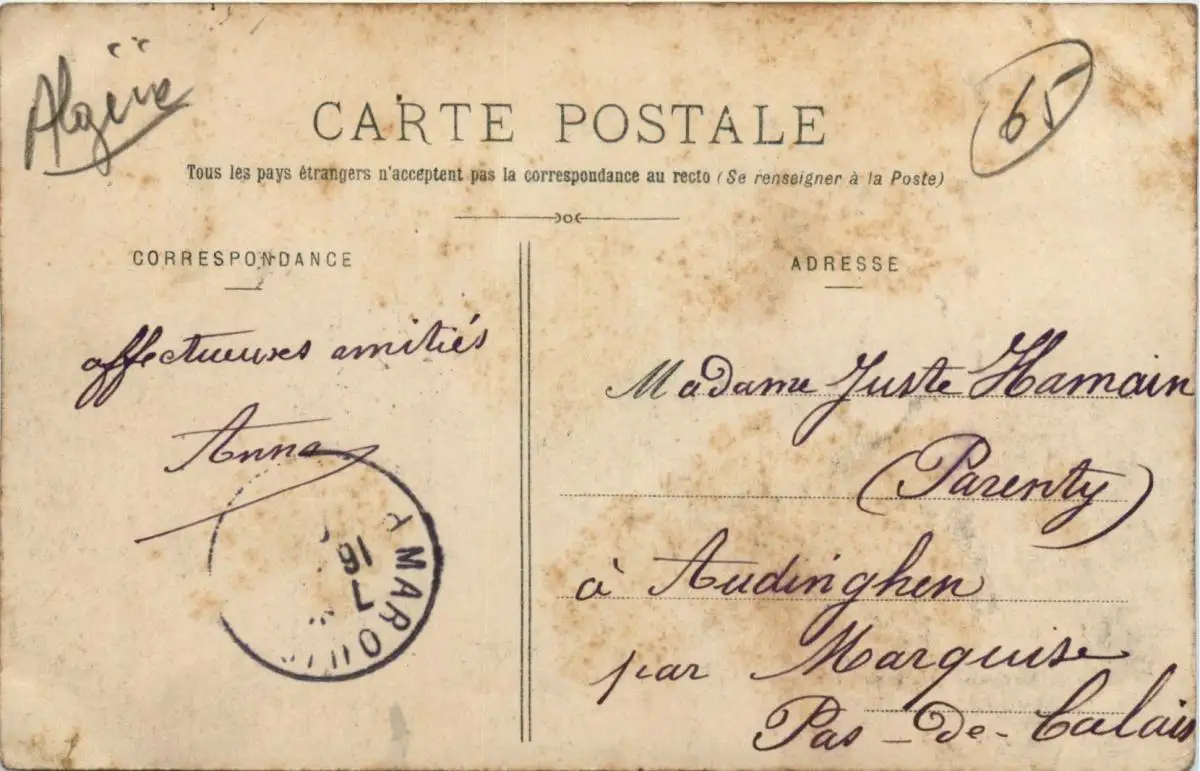 Algérie
65
CARTE POSTALE
Tous les pays étrangers n'acceptent pas la correspondance au recto (Se renseigner à la Poste)
CORRESPONDANCE
affectueuses amitiés
Anna
16
7
MARQUI
ADRESSE
Madame Juste Hamain
(Parenty)
à Audinghen
par Marquise
Pas-de-Calais